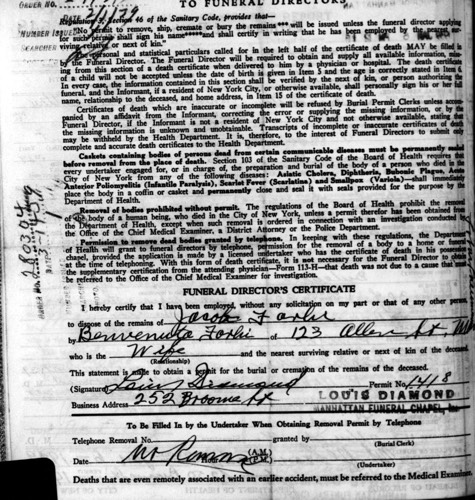 ORDER NO.
TO FUNERAL DIRECTORS
Regulation 3, Section 46 of the Sanitary Code, provides that—
"No permit to remove, ship, cremate or bury the remains *** will be issued unless the funeral director applying
for such permit shall sign his name **** and shall certify in writing that he has been employed by the nearest sur-
viving relative or next of kin."
The personal and statistical particulars called for in the left half of the certificate of death MAY be filled in
by the Funeral Director. The Funeral Director will be required to obtain and supply all available information, miss-
ing from this section of a death certificate when delivered to him by a physician or hospital. The death certificate
of a child will not be accepted unless the date of birth is given in Item 5 and the age is correctly stated in Item 6.
In every case, the information contained in this section shall be verified by the next of kin, or person authorizing the
funeral, and the Informant, if a resident of New York City, or otherwise available, shall personally sign his or her full
name, relationship to the deceased, and home address, in Item 15 of the certificate of death.
Certificates of death which are inaccurate or incomplete will be refused by Burial Permit Clerks unless accom-
panied by an affidavit from the Informant, correcting the error or supplying the missing information, or, by the
Funeral Director, if the Informant is not a resident of New York City or not otherwise available, stating that
the missing information is unknown and unobtainable. Transcripts of incomplete or inaccurate certificates of death
may be withheld by the Health Department. It is, therefore, to the interest of Funeral Directors to submit only
complete and accurate death certificates to the Health Department.
Caskets containing bodies of persons dead from certain communicable diseases must be permanently sealed
before removal from the place of death. Section 103 of the Sanitary Code of the Board of Health requires that
every undertaker engaged for, or in charge of, the preparation and burial of the body of a person who died in the
City of New York from any of the following diseases: Asiatic Cholera, Diphtheria, Bubonic Plague, Acute
Anterior Poliomyelitis (Infantile Paralysis), Scarlet Fever (Scarlatina) and Smallpox (Variola)—shall immediately
place the body in a coffin or casket and permanently close and seal it with seals provided for the purpose by the
Department of Health.
Removal of bodies prohibited without permit. The regulations of the Board of Health prohibit the removal
of the body of a human being, who died in the City of New York, unless a permit therefor has been obtained from
the Department of Health, except when such removal is ordered in connection with an investigation conducted by
the Office of the Chief Medical Examiner, a District Attorney or the Police Department.
Permission to remove dead bodies granted by telephone. In keeping with these regulations, the Department
of Health will grant to funeral directors by telephone, permission for the removal of a body to a home or funeral
chapel, provided the application is made by a licensed undertaker who has the certificate of death in his possession
at the time of telephoning. With this form of death certificate, it is not necessary for the Funeral Director to obtain
the supplementary certification from the attending physician—Form 113-H—that death was not due to a cause that must
be referred to the Office of the Chief Medical Examiner for investigation.
FUNERAL DIRECTOR'S CERTIFICATE
I hereby certify that I have been employed, without any solicitation on my part or that of any other person
to dispose of the remains of Jacob
by 123 Allen St
who is the Wife and the nearest surviving relative or next of kin of the deceased.
(Relationship)
This statement is made to obtain a permit for the burial or cremation of the remains of the deceased.
(Signature) Louis Diamond Permit No. 1418
LOUIS DIAMOND
Business Address 252 Broome St
MANHATTAN FUNERAL CHAPEL, Inc.
To Be Filled In by the Undertaker When Obtaining Removal Permit by Telephone
Telephone Removal No. granted by
(Burial Clerk)
Date (A.M.)
(P.M.)
(Undertaker)
Deaths that are even remotely associated with an earlier accident, must be referred to the Medical Examiner